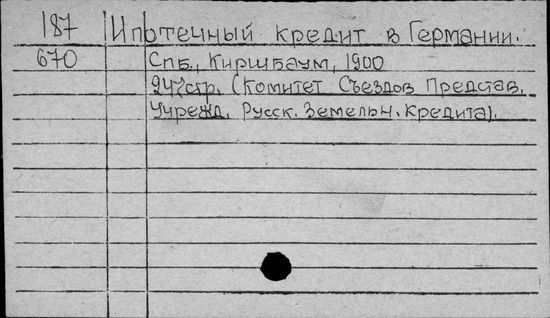 187 Ипотечный кредит в Германии.
670 Спб., Киршбаум, 1900
247стр. (Комитет Съездов Представ.
Учрежд. Русск. Земельн. Кредита).